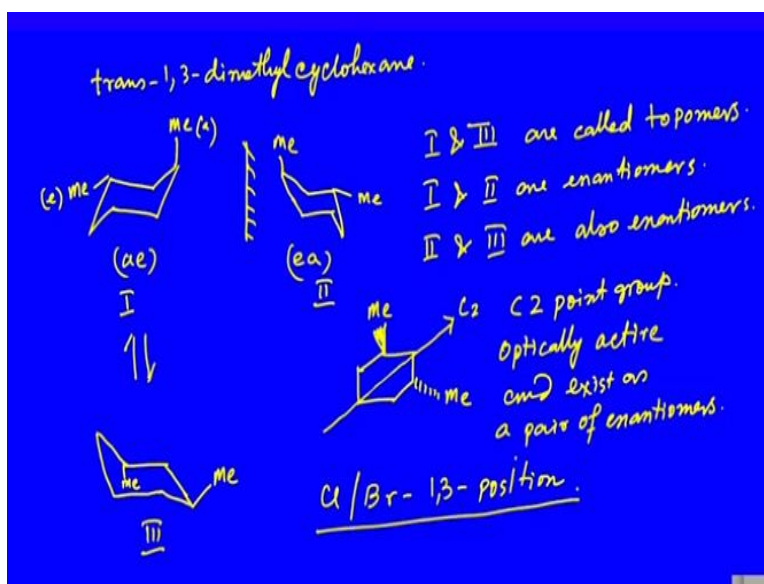 trans-1,3-dimethylcyclohexane.
Me(a)
(e) Me
(ae)
I
Me
Me
(ea)
II
I & III are called topomers.
I & II are enantiomers.
II & III are also enantiomers.
Me
C2
Me
C2 point group.
optically active
and exist as
a pair of enantiomers.
Me
Me
III
Cl/Br-1,3-position.